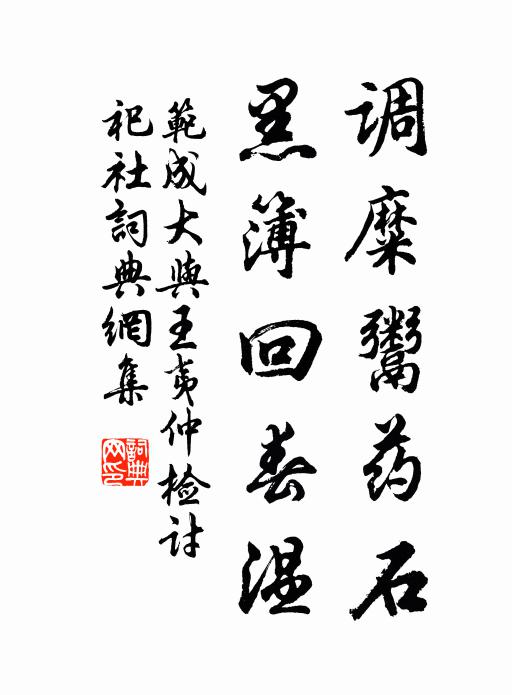 调糜鬻药石
黑簿回春温
範成大與王夷仲检讨
祀社詞典網集
詞典网印